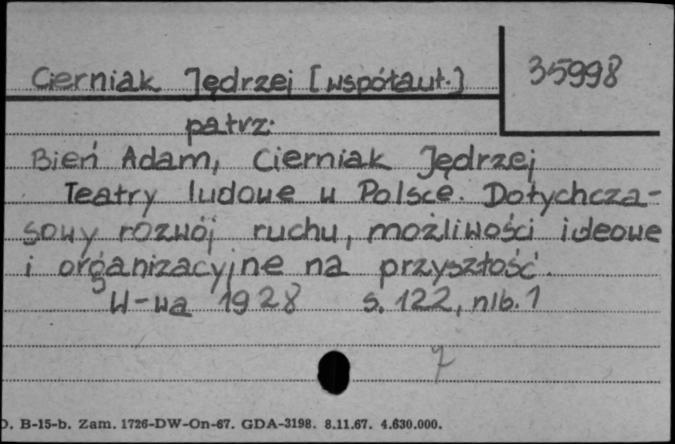 Cierniak Jędrzej [współaut.] 35998
patrz:
Bień Adam, Cierniak Jędrzej
Teatry ludowe w Polsce. Dotychcza-
sowy rozwój ruchu, możliwości ideowe
i organizacyjne na przyszłość.
W-wa 1928 s. 122, nlb. 1
7
D. B-15-b. Zam. 1726-DW-On-67. GDA-3198. 8.11.67. 4.630.000.